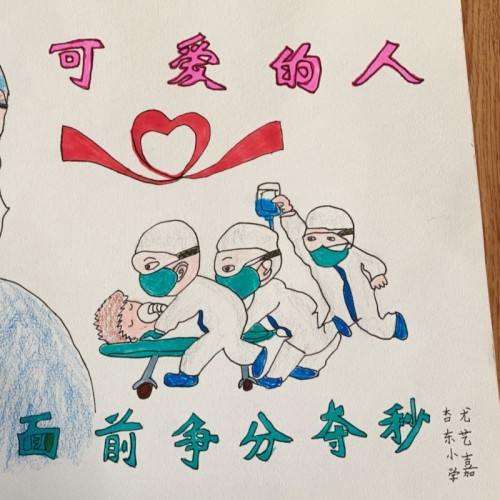 可爱的人
面前争分夺秒
尤艺嘉
杏东小学